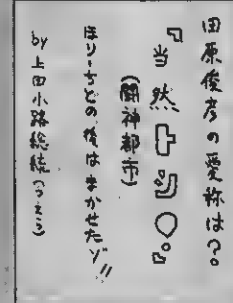 田原俊彦の愛称は?。
『当然トシ♡』
(闘神都市)
ほり〜ちとの後はまかせたゾ!!
by 上田小路総統(うえう)